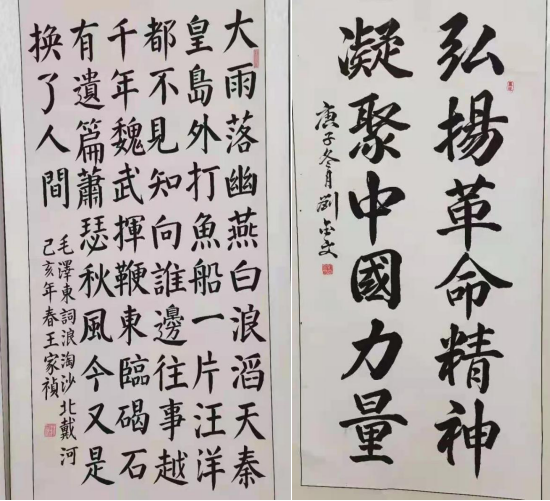 大雨落幽燕白浪滔天秦
皇島外打魚船一片汪洋
都不見知向誰邊往事越
千年魏武揮鞭東臨碣石
有遺篇蕭瑟秋風今又是
換了人間
毛澤東詞浪淘沙北戴河
己亥年春王家禎
弘揚革命精神
凝聚中國力量
庚子冬月劉文